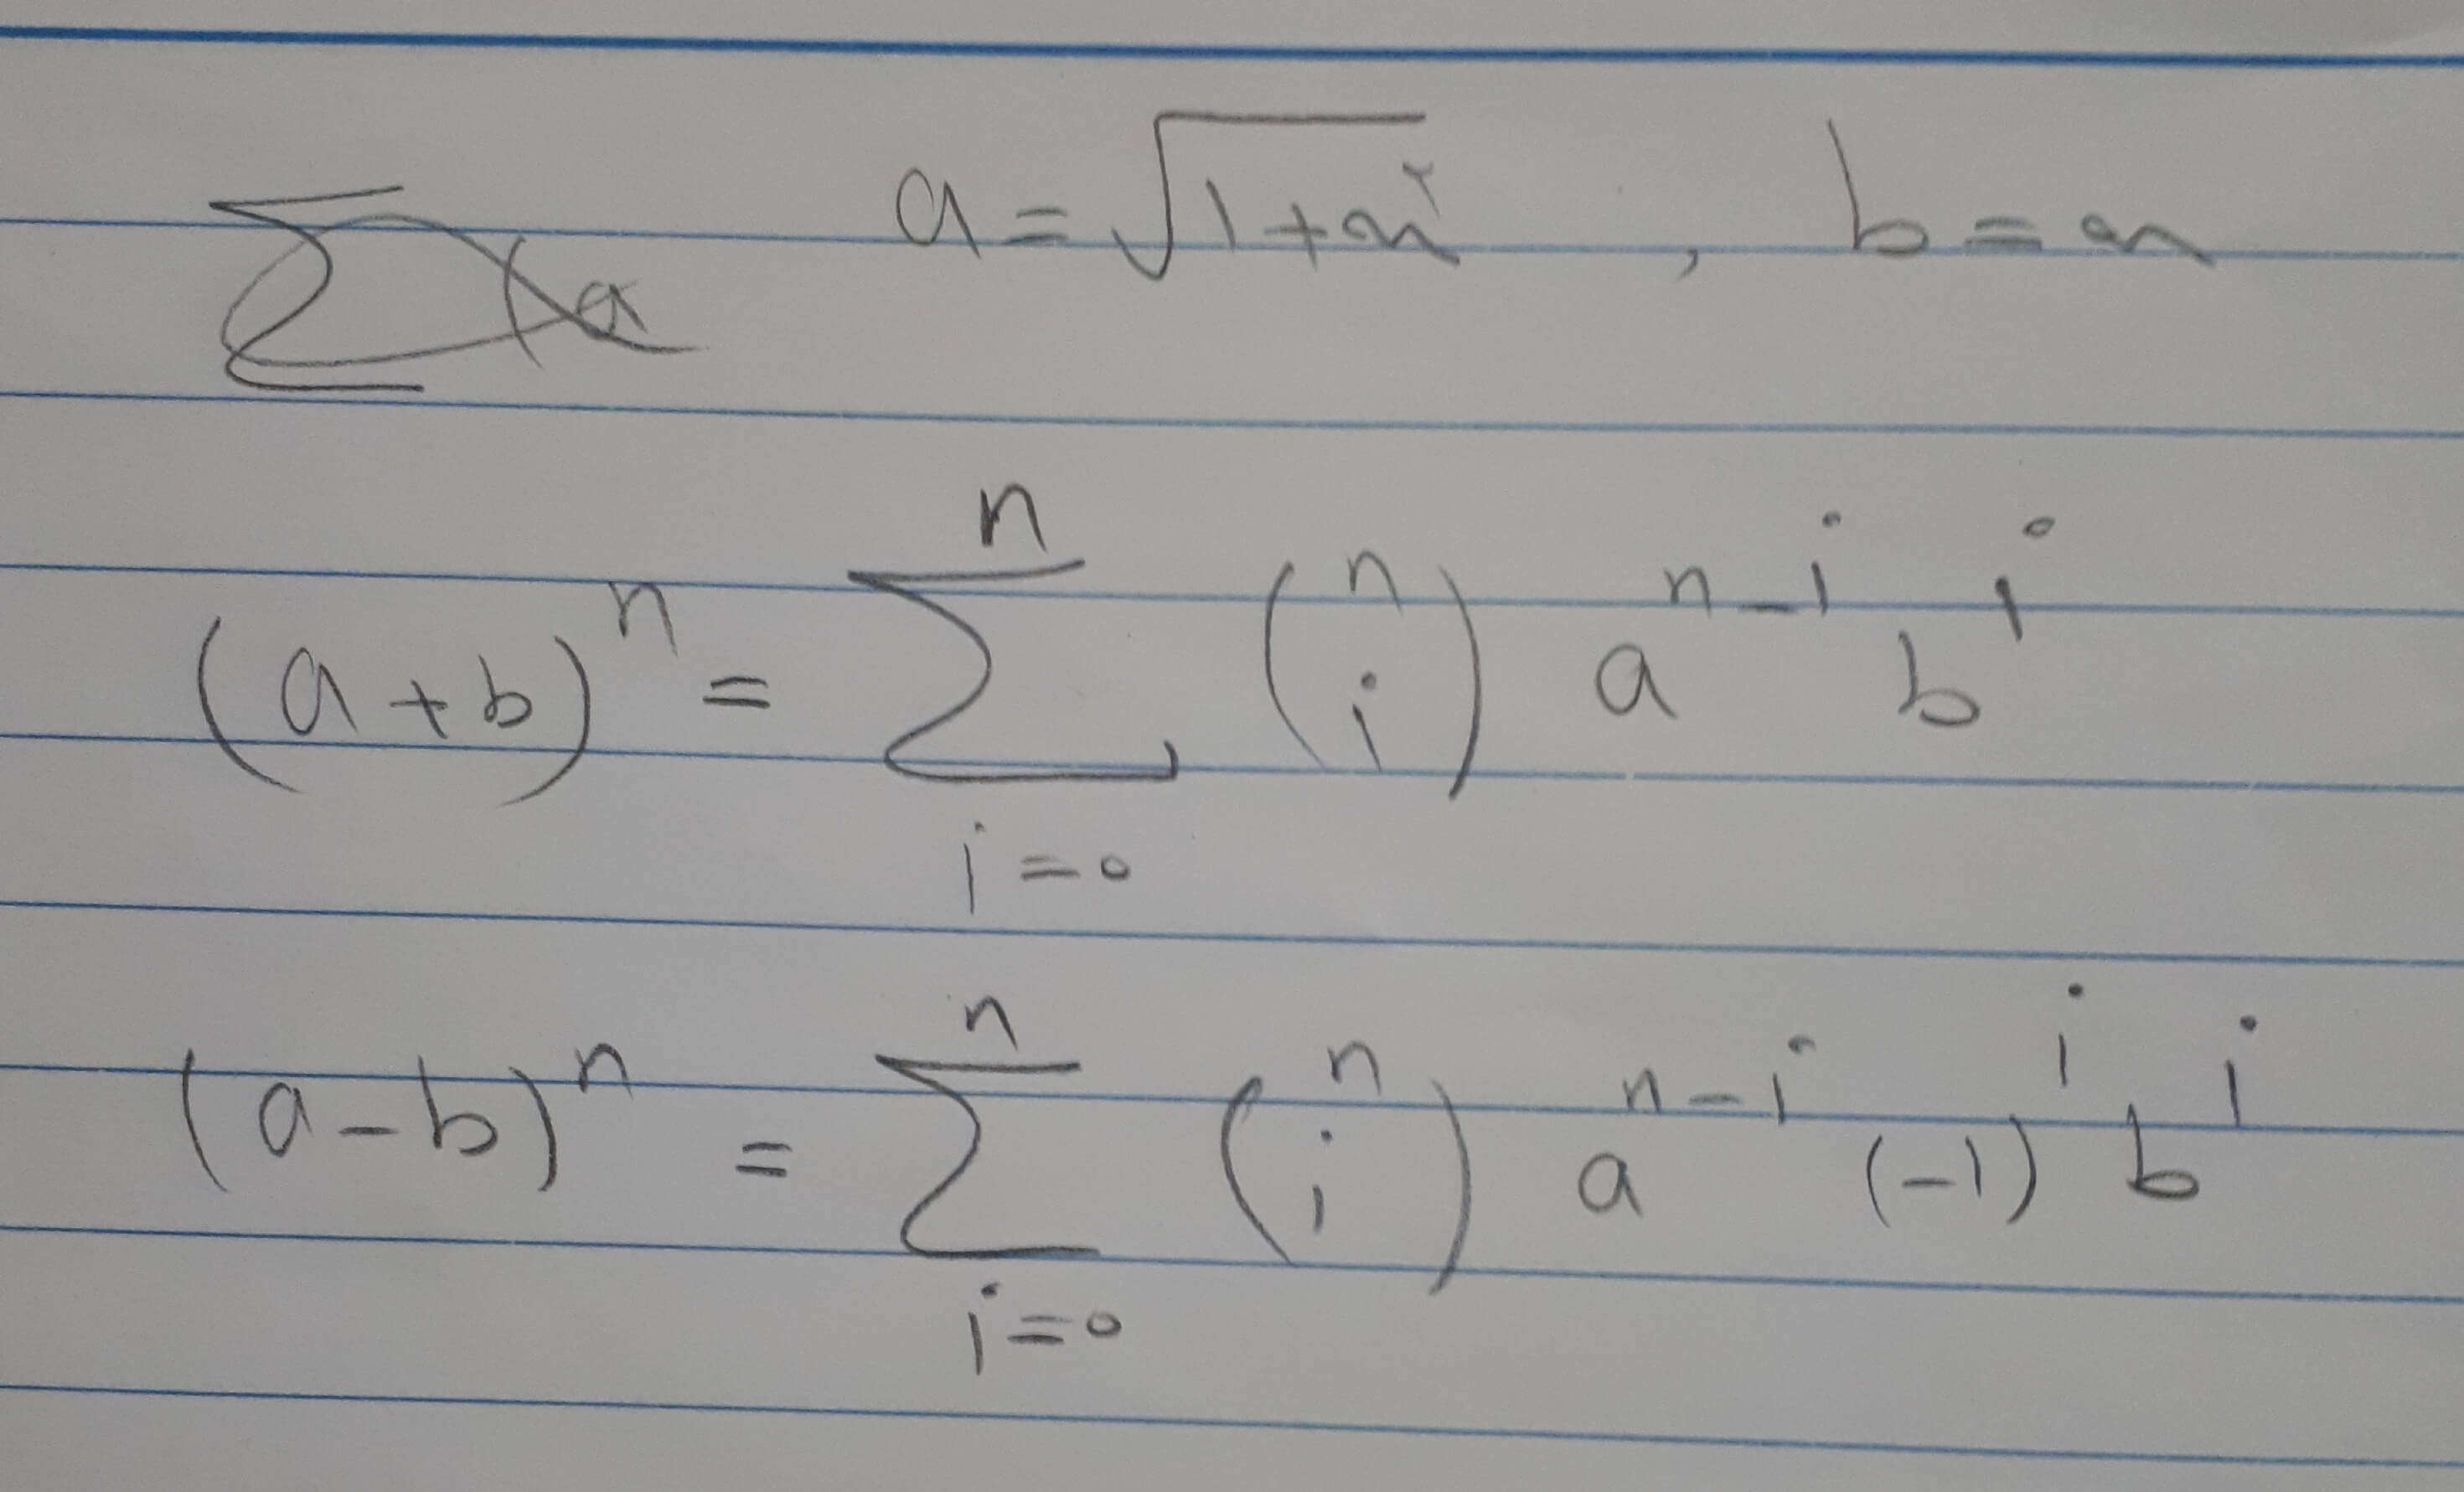 a = √(1+x²) , b = x
(a+b)ⁿ = ∑ⁿᵢ₌₀ (n i) aⁿ⁻ⁱ bⁱ
(a-b)ⁿ = ∑ⁿᵢ₌₀ (n i) aⁿ⁻ⁱ (-1)ⁱ bⁱ